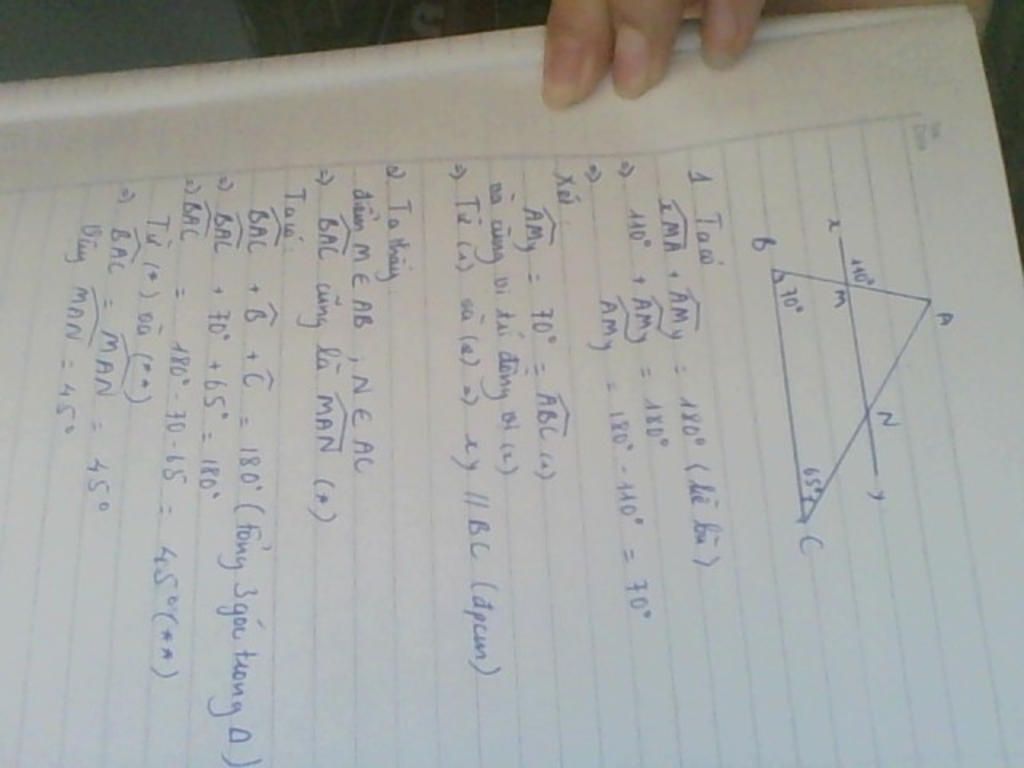 A
x
110°
M
N
y
B
70°
65°
C
1 Ta có
xMA + AMy = 180° (kề bù)
=> 110° + AMy = 180°
=> AMy = 180° - 110° = 70°
Xét:
AMy = 70° = ABC (1)
và cùng vị trí đồng vị (2)
=> Từ (1) và (2) => xy // BC (đpcm)
2) Ta thấy
điểm M ∈ AB, N ∈ AC
=> BAC cũng là MAN (*)
Ta có:
BAC + B + C = 180° (tổng 3 góc trong Δ)
=> BAC + 70° + 65° = 180°
=> BAC = 180 - 70 - 65 = 45° (**)
Từ (*) và (**)
=> BAC = MAN = 45°
Vậy MAN = 45°